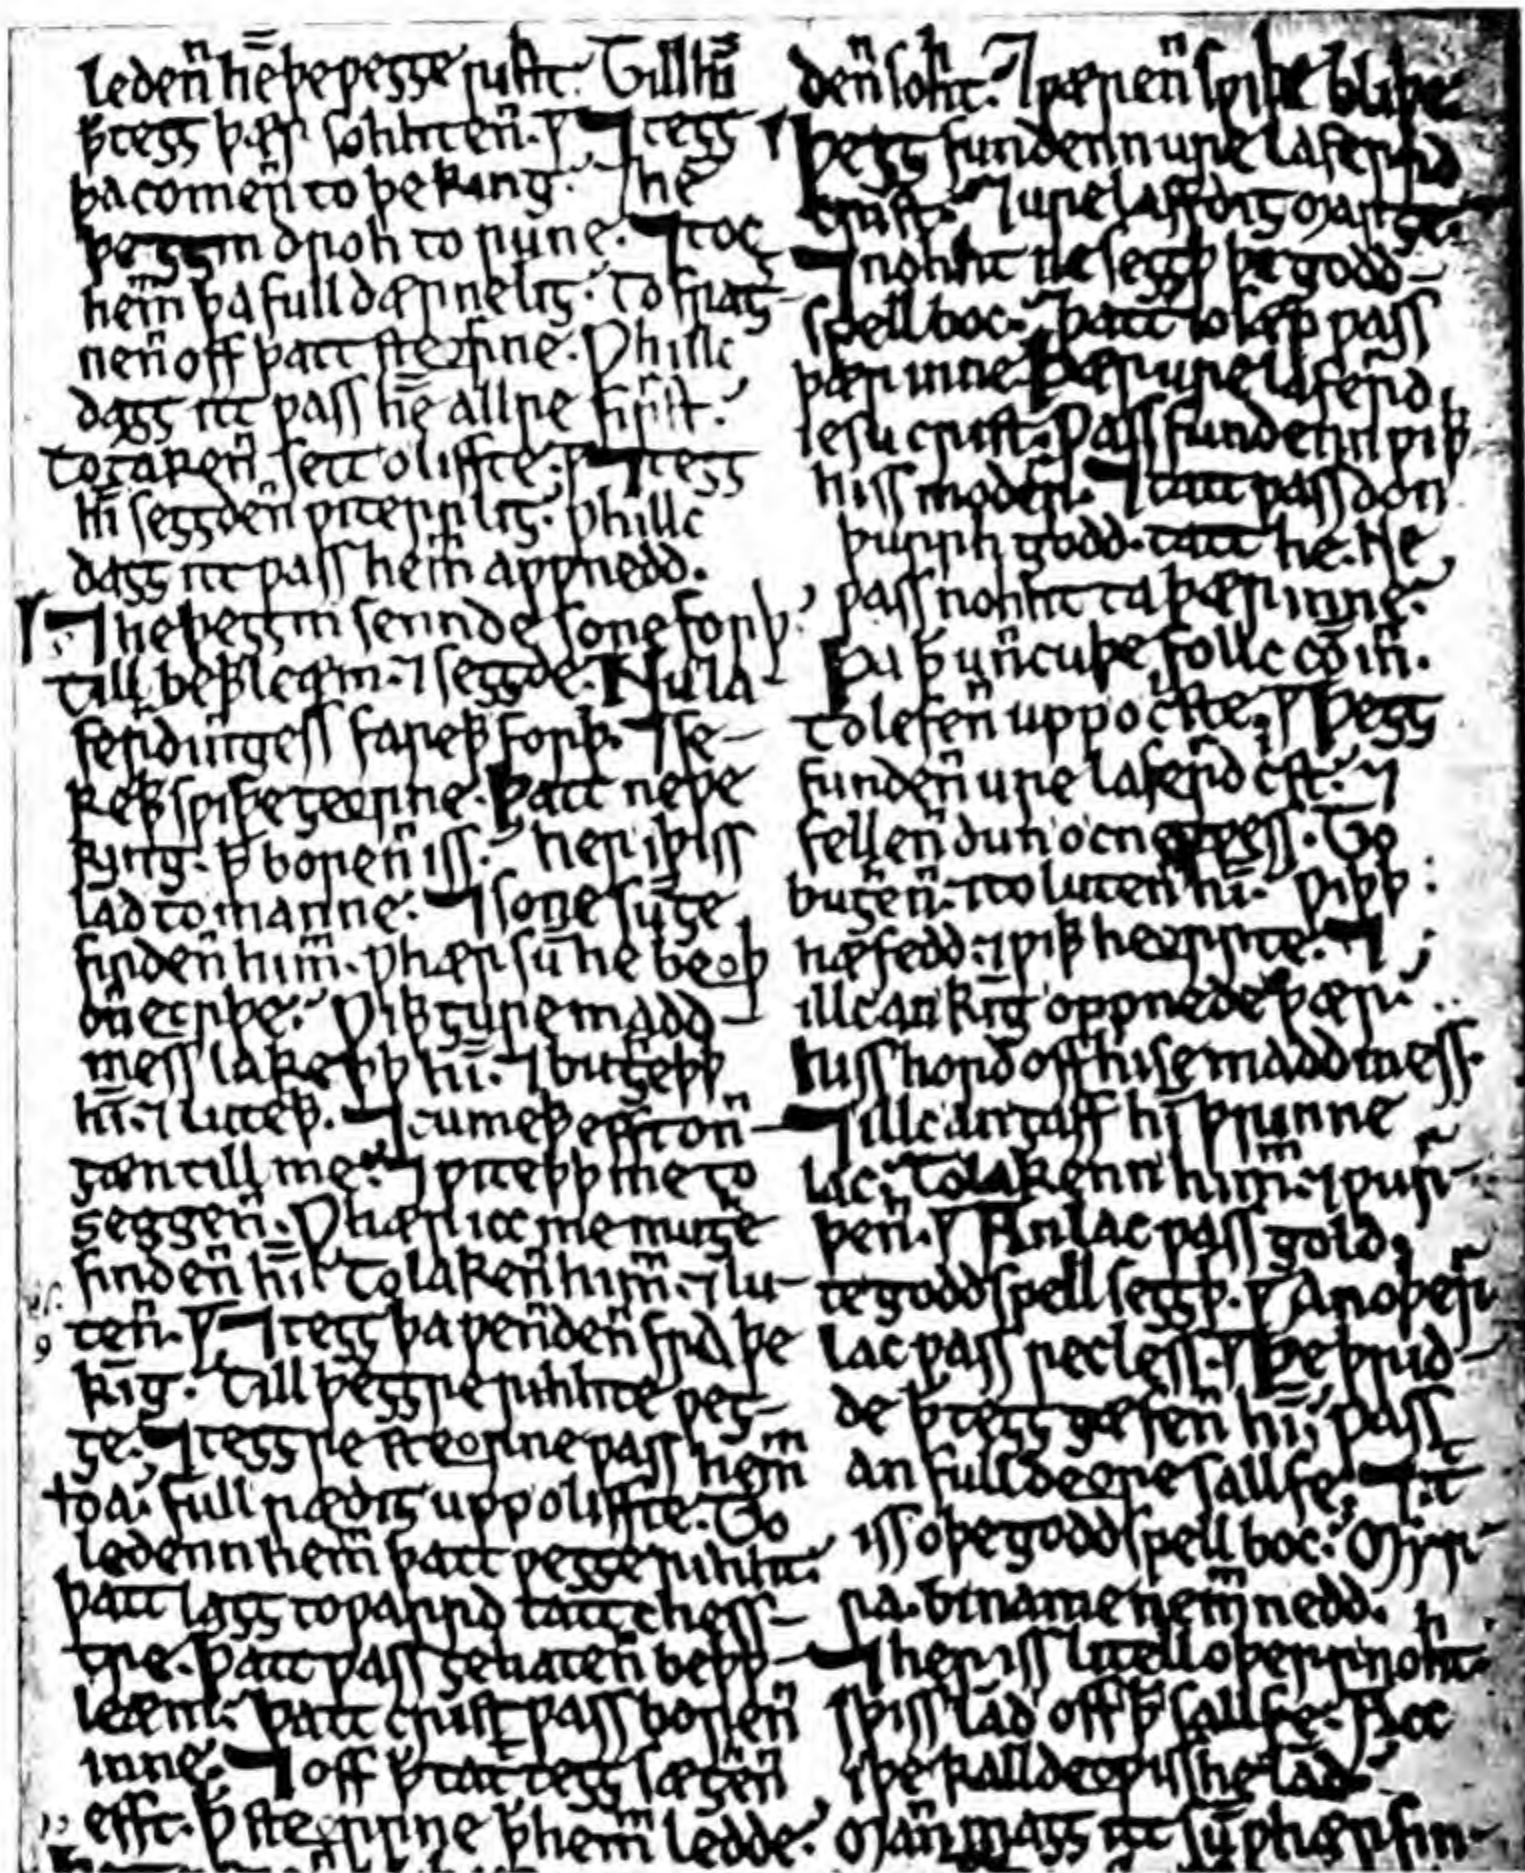 ledeñ hē̄ þe ƿeȝȝe rihht. Till hī̄
þ̄ teȝȝ þær sohhteñ. ⁊ teȝȝ
þa comeñ to þe king. ⁊ he
þeȝȝm droh to rune. ⁊ toc
hem̃ þa full dærnelig. to fraȝ-
neñ off þatt steorrne. Whillc
daȝȝ itt ƿass hē̄ allre firrst.
to takeñ sett o liffte. ⁊ teȝȝ
hī̄ seȝȝdeñ ƿiterrliȝ. whillc
daȝȝ itt ƿass hem̃ aƿƿnedd.
⁊ he þeȝȝm sennde sone forþ.
till beþþleæm. ⁊ seȝȝde. Nu la-
ferdinngess fareþþ forþ. ⁊ se-
keþþ sƿiþe ȝeorrne. Þatt neƿe
king. þ̄ boreñ iss. her i þiss
land to manne. ⁊ sone sū̄ ȝe
findeñ him̃. ƿhær sū̄ he beoþ
oñ erþe. Ƿiþþ ȝure madd-
mess lakeþþ hī̄. ⁊ buȝheþþ
hī̄. ⁊ luteþþ. ⁊ cumeþþ efft oñ-
ȝæn till me. ⁊ ƿiteþþ me to
seggeñ. Ƿhær icc me muȝe
findeñ hī̄. to lakeñ him̃. ⁊ lu-
teñ. ⁊ teȝȝ þa ƿendeñ frā þe
king. till þeȝȝre rihhte ƿeȝ-
ȝe. ⁊ teȝȝre steorrne ƿass hem̃
þa. full rædiȝ upp o liffte. To
ledenn hem̃ þatt ƿeȝȝe rihht.
þatt laȝȝ toƿarrd tatt chess-
tre. þatt ƿass ȝehateñ beþþ-
leæm. þatt crist ƿass boreñ
inne. ⁊ off þ̄ tatt teȝȝ sæȝheñ
efft. þ̄ steorrne þ̄ hem̃ ledde.
deñ sohht. ⁊ ƿæreñ sƿiþe bliþe
þeȝȝ fundenn ure laferrd
crist. ⁊ ure laffdiȝ marȝe.
⁊ nohht ne seȝȝþ þe godd-
spell boc. þatt iosæp ƿass
þær inne. Þær ure laferrd
iesu crist. Ƿass fundenn ƿiþþ
hiss moderr. ⁊ tatt ƿass don
þurrh godd. tatt he. Ne
ƿass nohht ta þær inne.
Þa þ̄ uñcuþe follc cō̄ iñ.
To lefeñ uppo c̄st. Þeȝȝ
fundeñ ure laferrd c̄st. ⁊
felleñ dun o cneoƿess. To
buȝheñ. ⁊ to luteñ hī̄. Ƿiþþ
hæfedd. ⁊ ƿiþþ heorrte. ⁊
illc an king oppnede þær.
hiss hord off hise maddmess.
⁊ illc an ȝaff hī̄ þrinne
lac. To lakenn him̃. ⁊ ƿur-
þeñ. An lac ƿass gold.
te goddspell seȝȝþ. An oþerr
lac ƿass recless. Þe þrid-
de þ̄ teȝȝ gæfeñ hī̄. ƿass
an full deore sallfe. ⁊ t̄
iss o þe goddspell boc. Myr-
ra. bi name nem̃nedd.
⁊ her iss litell oþerr nohht.
I þiss land off þ̄ sallfe. Acc
i þe kalldeoƿisshe land.
Mañ maȝȝ itt sū̄ ƿhær fin-